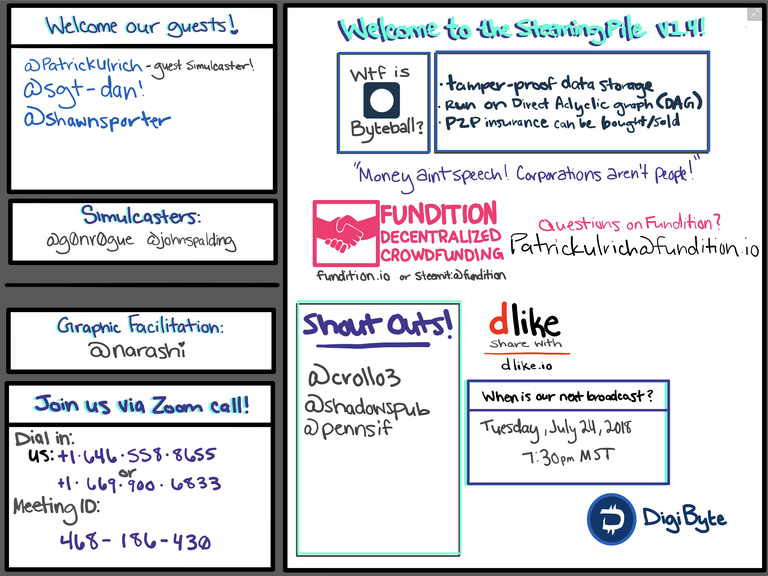 Welcome our guests!
@Patrickulrich - guest Simulcaster!
@sgt-dan!
@shawnsporter
Simulcasters:
@g0nr0gue @johnspalding
Graphic Facilitation:
@narashi
Join us via Zoom call!
Dial in:
us: +1·646·558·8655
or
+1·669·900·6833
Meeting ID:
468-186-430
Welcome to the SteemingPile V1.4!
Wtf is
Byteball?
· tamper-proof data storage
· Run on Direct Aclyclic graph (DAG)
· P2P insurance can be bought/sold
"Money aint speech! Corporations aren't people!"
FUNDITION
DECENTRALIZED
CROWDFUNDING
fundition.io or Steemit:@fundition
Questions on Fundition?
Patrickulrich@fundition.io
Shout Outs!
@crollo3
@shadowspub
@pennsif
dlike
Share with
dlike.io
When is our next broadcast?
Tuesday, July 24, 2018
7:30pm MST
DigiByte